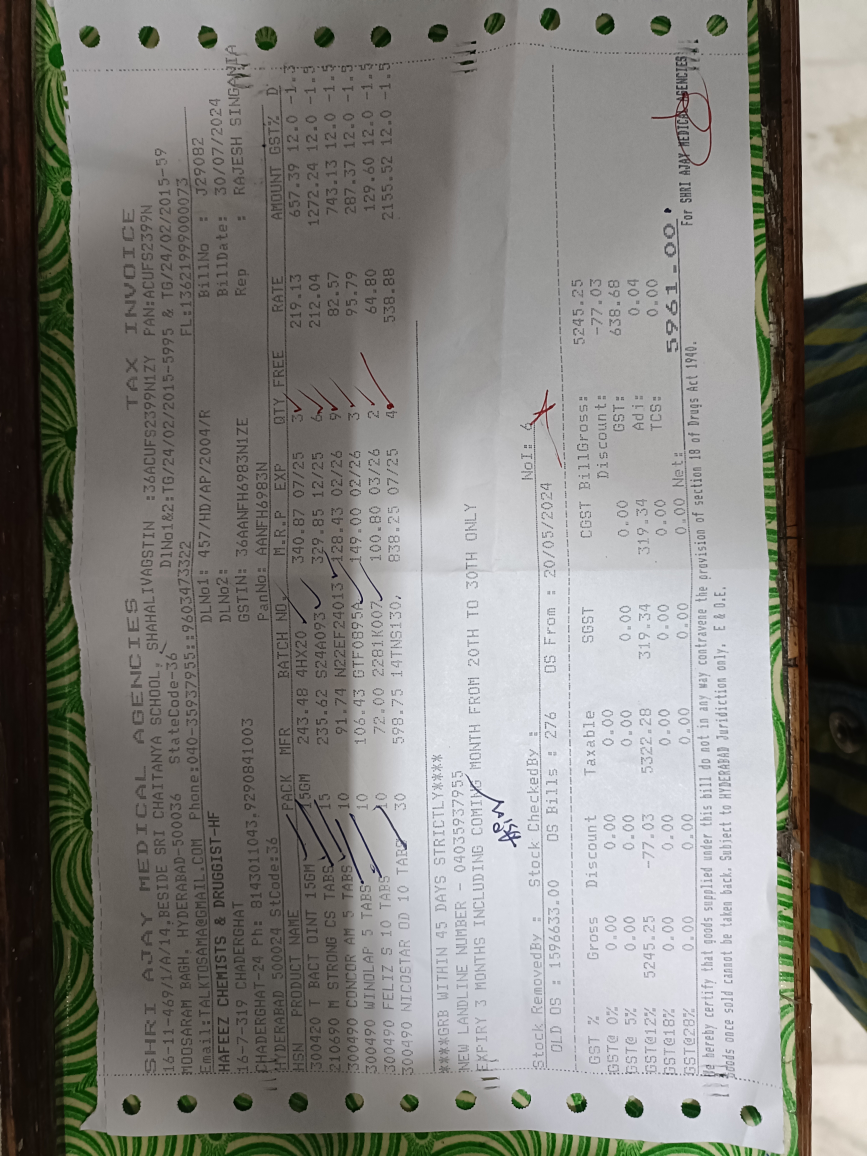 SHRI AJAY MEDICAL AGENCIES TAX INVOICE
16-11-469/1/A/14,BESIDE SRI CHAITANYA SCHOOL, SHAHALIVAGSTIN :36ACUFS2399N1ZY PAN:ACUFS2399N
MOOSARAM BAGH, HYDERABAD-500036 StateCode-36 DlNo1&2:TG/24/02/2015-5995 & TG/24/02/2015-59
Email:TALKTOSAMA@GMAIL.COM Phone:040-35937955::9603473322 FL:13621999000073
HAFEEZ CHEMISTS & DRUGGIST-HF DLNo1: 457/HD/AP/2004/R BillNo : J29082
16-7-319 CHADERGHAT DLNo2: BillDate: 30/07/2024
CHADERGHAT-24 Ph: 8143011043,9290841003 GSTIN: 36AANFH6983N1ZE Rep : RAJESH SINGANIA
HYDERABAD 500024 StCode:36 PanNo: AANFH6983N
HSN PRODUCT NAME PACK MFR BATCH NO. M.R.P EXP QTY FREE RATE AMOUNT GST% D
300420 T BACT OINT 15GM 15GM 243.48 4HX20 340.87 07/25 3 219.13 657.39 12.0
210690 M STRONG CS TABS 15 235.62 S24A093 329.85 12/25 6 212.04 1272.24 12.0 -1.5
300490 CONCOR AM 5 TABS 10 91.74 N22EF24013 128.43 02/26 9 82.57 743.13 12.0 -1.5
300490 WINOLAP 5 TABS 10 106.43 GTF0895A 149.00 02/26 3 95.79 287.37 12.0 -1.5
300490 FELIZ S 10 TABS 10 72.00 2281K007 100.80 03/26 2 64.80 129.60 12.0 -1.5
300490 NICOSTAR OD 10 TABS 30 598.75 14TNS130, 838.25 07/25 4 538.88 2155.52 12.0 -1.5
****SRB WITHIN 45 DAYS STRICTLY****
NEW LANDLINE NUMBER - 04035937955
EXPIRY 3 MONTHS INCLUDING COMING MONTH FROM 20TH TO 30TH ONLY
Stock RemovedBy : Stock CheckedBy : NoI: 6
OLD OS : 1596633.00 OS Bills : 276 OS From : 20/05/2024
GST % Gross Discount Taxable SGST CGST BillGross: 5245.25
GST@ 0% 0.00 0.00 0.00 0.00 0.00 Discount: -77.03
GST@ 5% 0.00 0.00 0.00 0.00 0.00 GST: 638.68
GST@12% 5245.25 -77.03 5322.28 319.34 319.34 Adj: 0.04
GST@18% 0.00 0.00 0.00 0.00 0.00 TCS: 0.00
GST@28% 0.00 0.00 0.00 0.00 0.00 Net: 5961-00
We hereby certify that goods supplied under this bill do not in any way contravene the provision of section 18 of Drugs Act 1940. For SHRI AJAY MEDICAL AGENCIES
Goods once sold cannot be taken back. Subject to HYDERABAD Juridiction only. E & O.E.